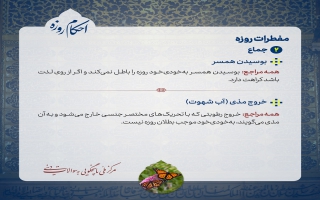 احکام روزه
مفطرات روزه
۲ جماع
بوسیدن همسر
همه مراجع: بوسیدن همسر به‌خودی‌خود روزه را باطل نمی‌کند و اگر از روی لذت
باشد کراهت دارد.
خروج مذی (آب شهوت)
همه مراجع: خروج رطوبتی که با تحریک‌های مختصر جنسی خارج می‌شود و به آن
مذی می‌گویند، به‌خودی‌خود موجب بطلان روزه نیست.
مرکز ملی پاسخگویی به سوالات دینی